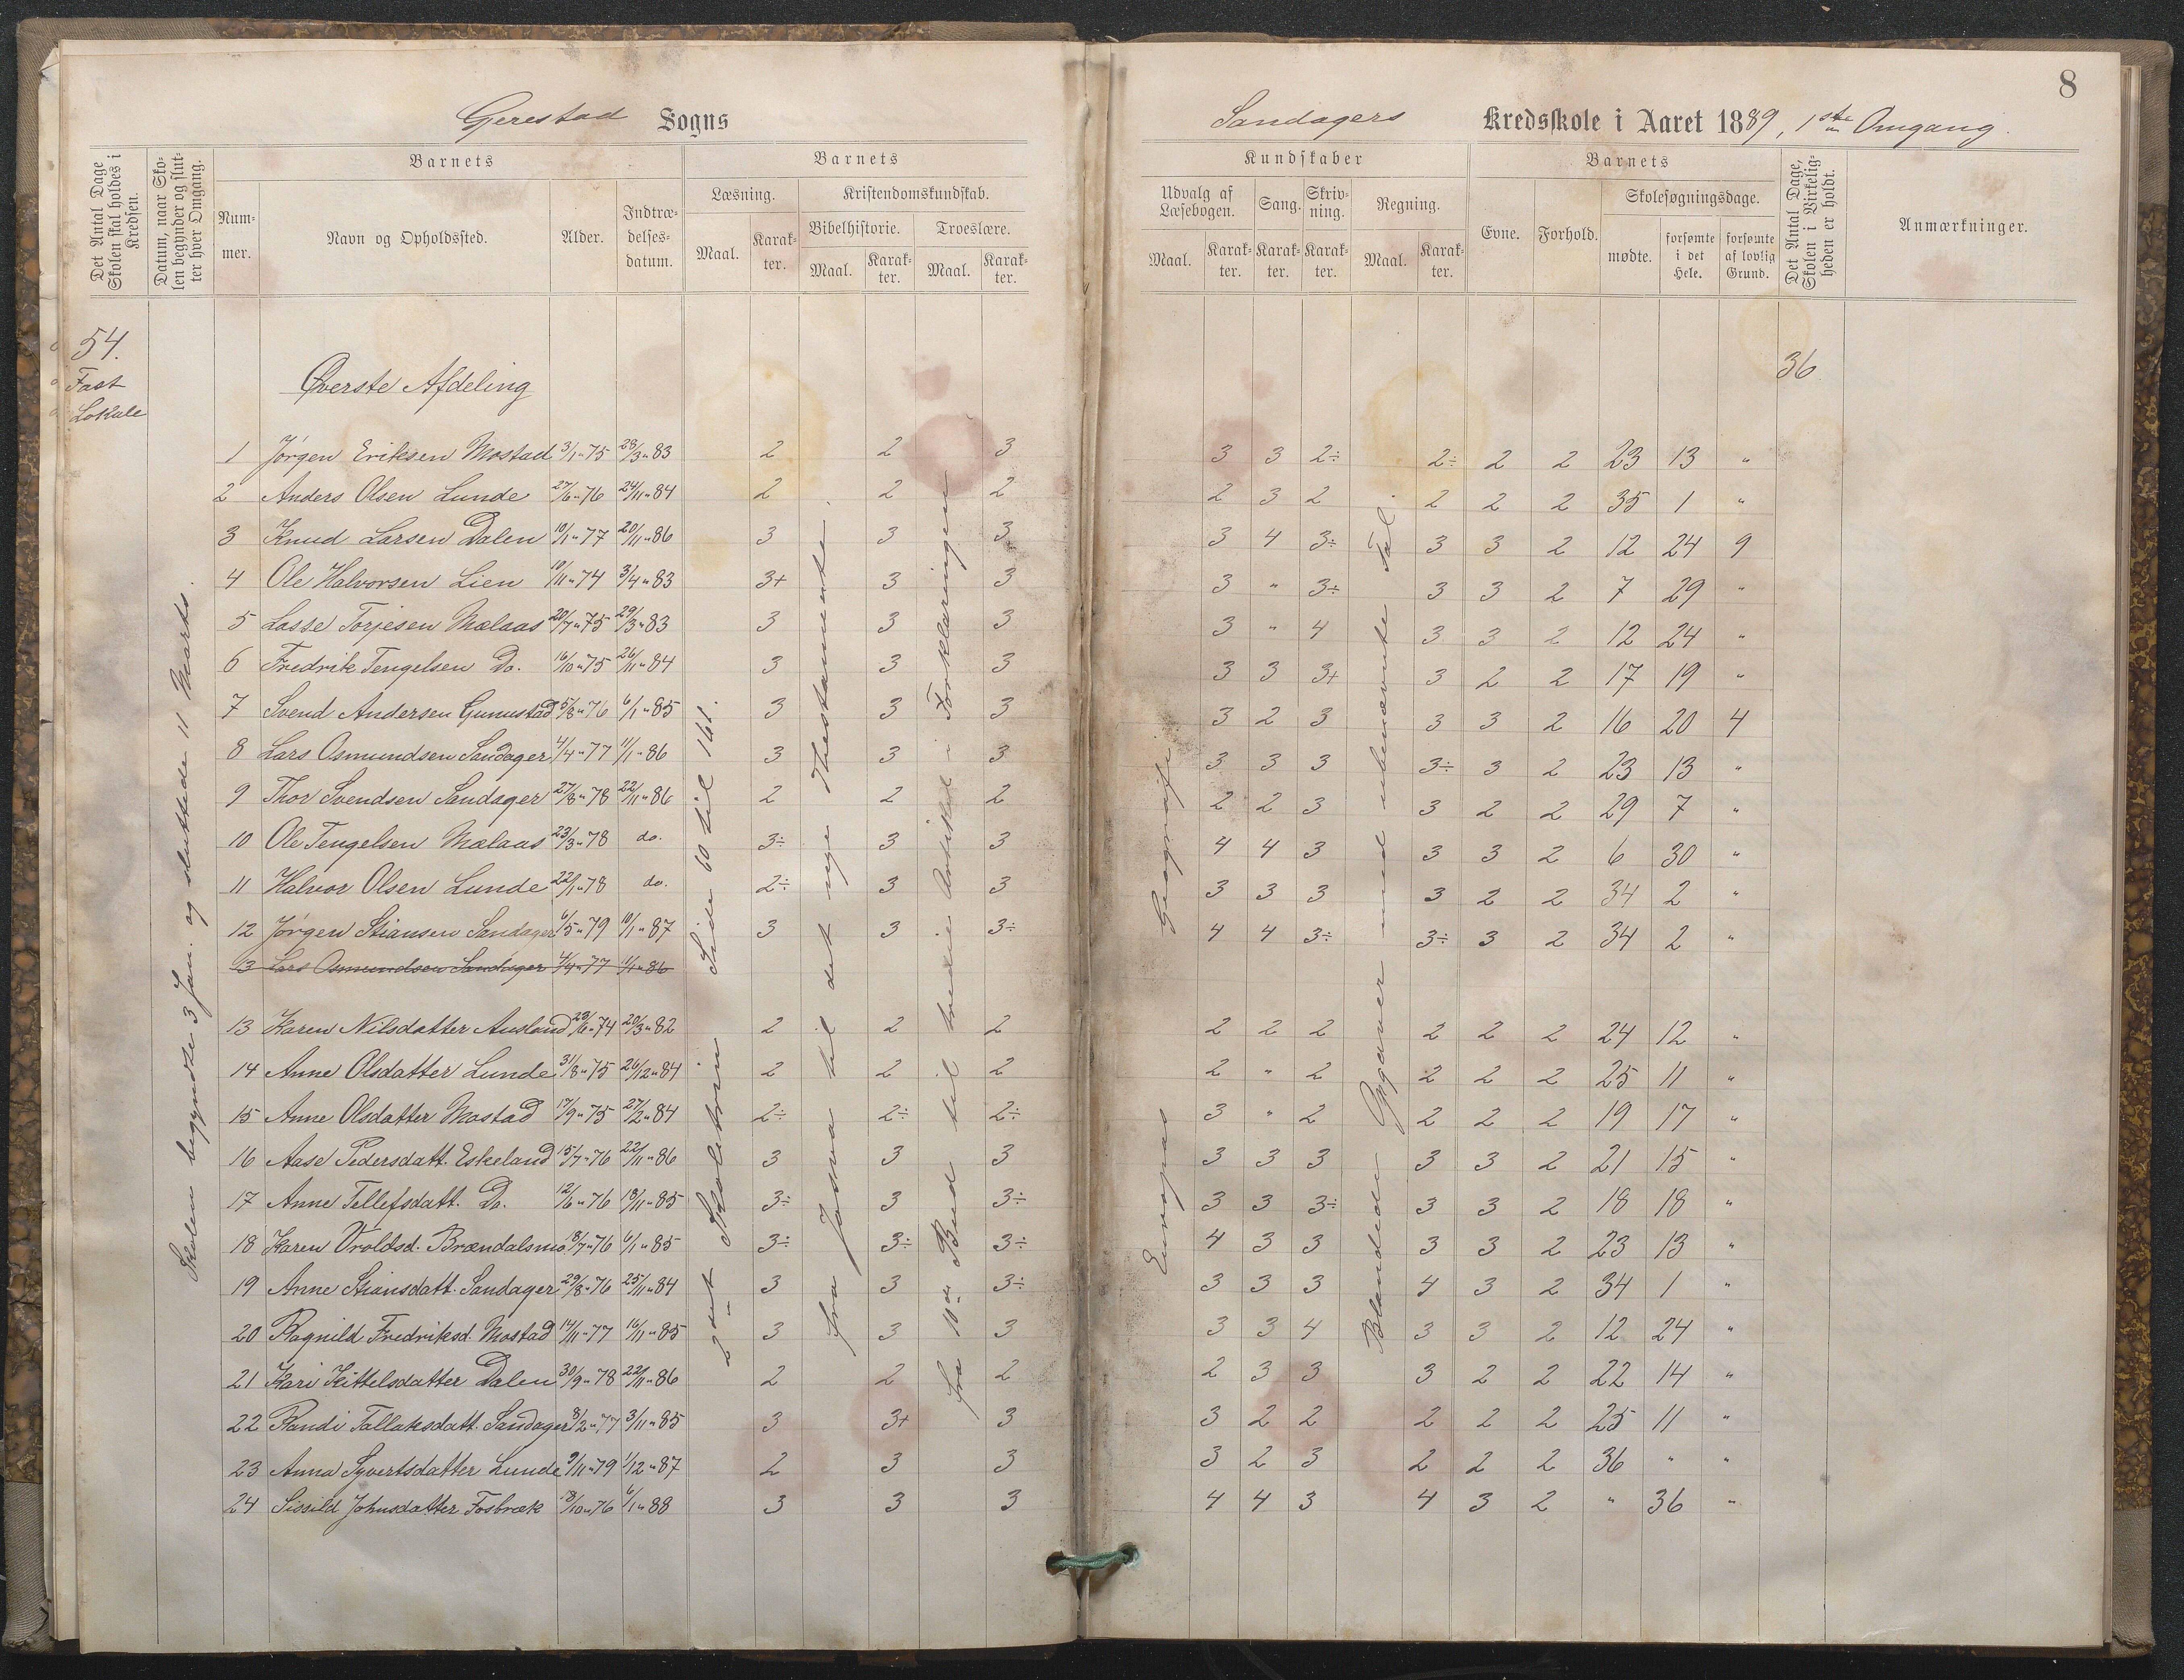 8
Gjerestad Sogns
Sandagers Kredsskole i Aaret 1889, 1ste Omgang.
Det Antal Dage Skolen skal holdes i Kredsen.
Datum, naar Skolen begynder og slutter hver Omgang.
Barnets
Nummer.
Navn og Opholdssted.
Alder.
Indtrædelsesdatum.
Barnets
Læsning.
Maal.
Karakter.
Kristendomskundskab.
Bibelhistorie.
Maal.
Karakter.
Troeslære.
Maal.
Karakter.
Kundskaber
Udvalg af Læsebogen.
Maal.
Karakter.
Sang.
Karakter.
Skrivning.
Karakter.
Regning.
Maal.
Karakter.
Barnets
Evne.
Forhold.
Skolesøgningsdage.
mødte.
forsømte i det Hele.
forsømte af lovlig Grund.
Det Antal Dage, Skolen i Virkeligheden er holdt.
Anmærkninger.
54.
Fast
Lokale
Øverste Afdeling
36
Skolen begyndte 3 Jan. og sluttede 11 Marts.
2det Skoletrin Side 60 til 161.
fra Josva til det nye Thestamente.
fra 10de Bud til tredie Artikel i Forklaringen
Europas Geografi.
Blandede Opgaver med ubenævnte Tal.
1 Jørgen Eriksen Mostad 3/1 " 75 28/3 " 83 2 2 3 3 3 2÷ 2÷ 2 2 23 13 "
2 Anders Olsen Lunde 27/6 " 76 24/11 " 84 2 2 2 2 3 2 2 2 2 35 1 "
3 Knud Larsen Dalen 10/1 " 77 20/11 " 86 3 3 3 3 4 3÷ 3 3 2 12 24 9
4 Ole Halvorsen Lien 10/11 " 74 3/4 " 83 3+ 3 3 3 " 3÷ 3 3 2 7 29 "
5 Lasse Torjesen Mælaas 20/7 " 75 29/3 " 83 3 3 3 3 " 4 3 3 2 12 24 "
6 Fredrik Tengelsen Do. 16/10 " 75 26/11 " 84 3 3 3 3 3 3+ 3 2 2 17 19 "
7 Svend Andersen Gunustad 5/8 " 76 6/1 " 85 3 3 3 3 2 3 3 3 2 16 20 4
8 Lars Osmundsen Sandager 4/4 " 77 11/1 " 86 3 3 3 3 3 3 3÷ 3 2 23 13 "
9 Thor Svendsen Sandager 27/8 " 78 22/11 " 86 2 2 2 2 2 3 3 2 2 29 7 "
10 Ole Tengelsen Mælaas 23/3 " 78 do. 3÷ 3 3 4 4 3 3 3 2 6 30 "
11 Halvor Olsen Lunde 22/1 " 78 do. 2÷ 3 3 3 3 3 3 2 2 34 2 "
12 Jørgen Stiansen Sandager 6/5 " 79 10/1 " 87 3 3 3÷ 4 4 3÷ 3÷ 3 2 34 2 "
13 Lars Osmundsen Sandager 4/4 " 77 11/1 " 86
13 Karen Nilsdatter Ausland 23/6 " 74 20/3 " 82 2 2 2 2 2 2 2 2 2 24 12 "
14 Anne Olsdatter Lunde 31/8 " 75 26/12 " 84 2 2 2 2 " 2 2 2 2 25 11 "
15 Anne Olsdatter Mostad 17/9 " 75 27/2 " 84 2÷ 2÷ 2÷ 3 " 2 2 2 2 19 17 "
16 Aase Pedersdatt. Eskeland 15/7 " 76 22/11 " 86 3 3 3 3 3 3 3 3 2 21 15 "
17 Anne Tellefsdatt. Do. 12/6 " 76 18/11 " 85 3÷ 3 3÷ 3 3 3÷ 3 3 2 18 18 "
18 Karen Vroldsd. Brændalsmo 18/7 " 76 6/1 " 85 3÷ 3÷ 3÷ 4 3 3 3 3 2 23 13 "
19 Anne Stiansdatt. Sandager 29/8 " 76 25/11 " 84 3 3 3÷ 3 3 3 4 3 2 34 1 "
20 Ragnild Fredriksd. Mostad 14/11 " 77 16/11 " 85 3 3 3 3 3 4 3 3 2 12 24 "
21 Kari Kittelsdatter Dalen 30/9 " 78 22/11 " 86 2 2 2 2 3 3 3 2 2 22 14 "
22 Randi Tallaksdatt. Sandager 8/2 " 77 3/11 " 85 3 3+ 3 3 2 2 2 2 2 25 11 "
23 Anna Syvertsdatter Lunde 9/11 " 79 1/12 " 87 2 3 3 3 2 3 2 2 2 36 " "
24 Sissild Johnsdatter Fosbræk 18/10 " 76 6/1 " 88 3 3 3 4 4 3 4 3 2 " 36 "